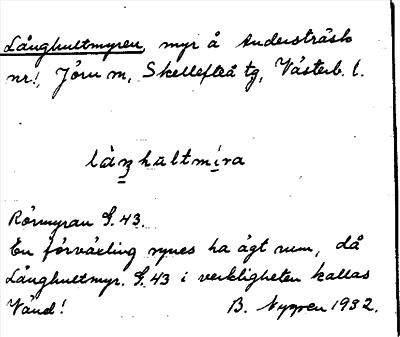 Långhultmyren, myr å Andersträsk
nr!, Jörn m, Skellefteå tg, Västerb. l.
låŋhultmi̱ra
Rörmyran G. 43.
En förväxling synes ha ägt rum, då
Långhultmyr. G. 43 i verkligheten kallas
Vänd! B. Nygren 1932.